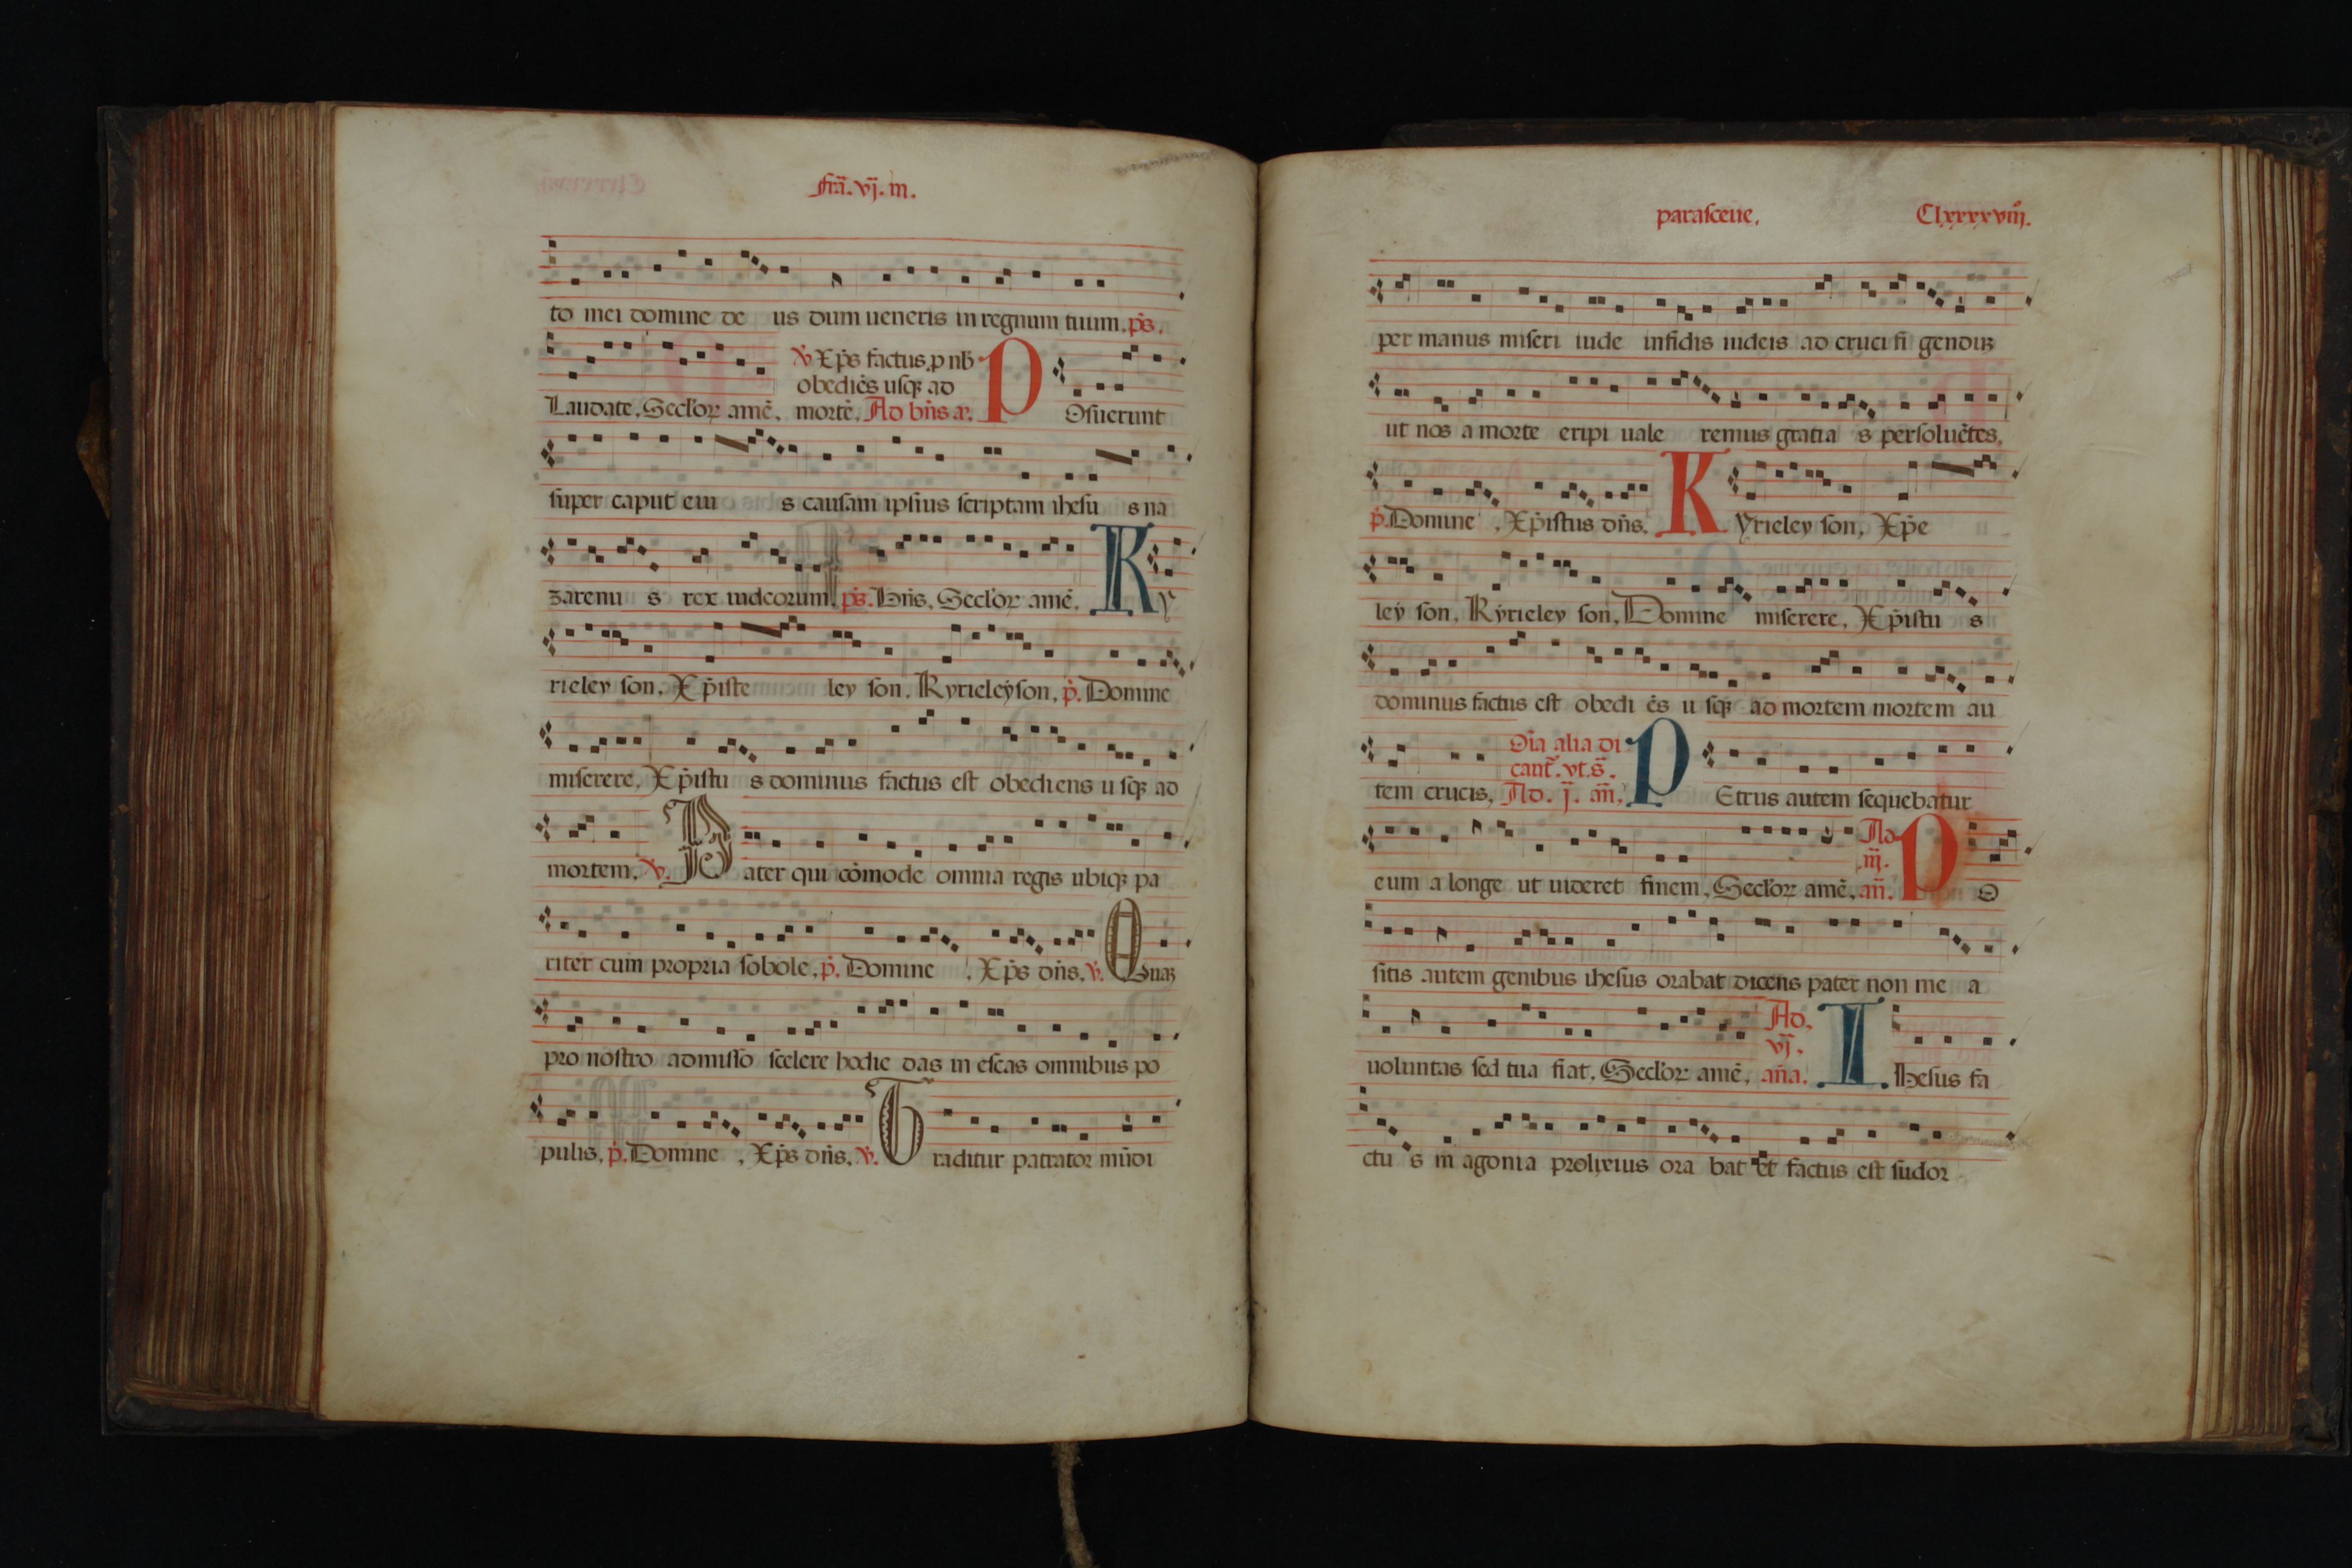 fr̄a. vj. in.
to mei domine de us dum ueneris in regnum tuum. ps̄.
v̇ Xp̄s factus. p nb̄
obediēs usqꝫ ad
Laudate. Seclȯꝝ amē. mortē. Ad bn̄s a. P Osuerunt
super caput eiu s causam ipsius scriptam ihesu s na
zarenu s rex iudeorum. ps̄. Bn̄s. Seclȯꝝ amē. K y
rieley son. Xp̄iste ley son. Kyrieleyson. p̄. Domine
miserere. Xp̄istu s dominus factus est obediens u sqꝫ ad
mortem. v̇. P ater qui cōmode omnia regis ubiqꝫ pa
riter cum propria sobole. p̄. Domine . Xp̄s dn̄s. v̇. Quaꝫ
pro nostro admisso scelere hodie das in escas omnibus po
pulis. p̄. Domine . Xp̄s dn̄s. v̇. T raditur patrator mūdi
parasceue. Clxxxxviij.
per manus miseri iude infidis iudeis ad cruci fi gendūꝫ
ut nos a morte eripi uale remus gratia s persoluētes.
p̄. Domine . Xp̄istus dn̄s. K yrieley son. Xp̄e
ley son. Kyrieley son. Domine miserere. Xp̄istu s
dominus factus est obedi ēs u sqꝫ ad mortem mortem au
Oīa alia di
cant̄. vt. s̄.
tem crucis. Ad. j. an̄. P Etrus autem sequebatur
Ad
iij.
eum a longe ut uideret finem. Seclȯꝝ amē. an̄. P O
sitis autem genibus ihesus orabat dicens pater non me a
Ad.
vj.
uoluntas sed tua fiat. Seclȯꝝ amē. an̄a. I. Hesus fa
ctu s in agonia prolixius ora bat et factus est sudor